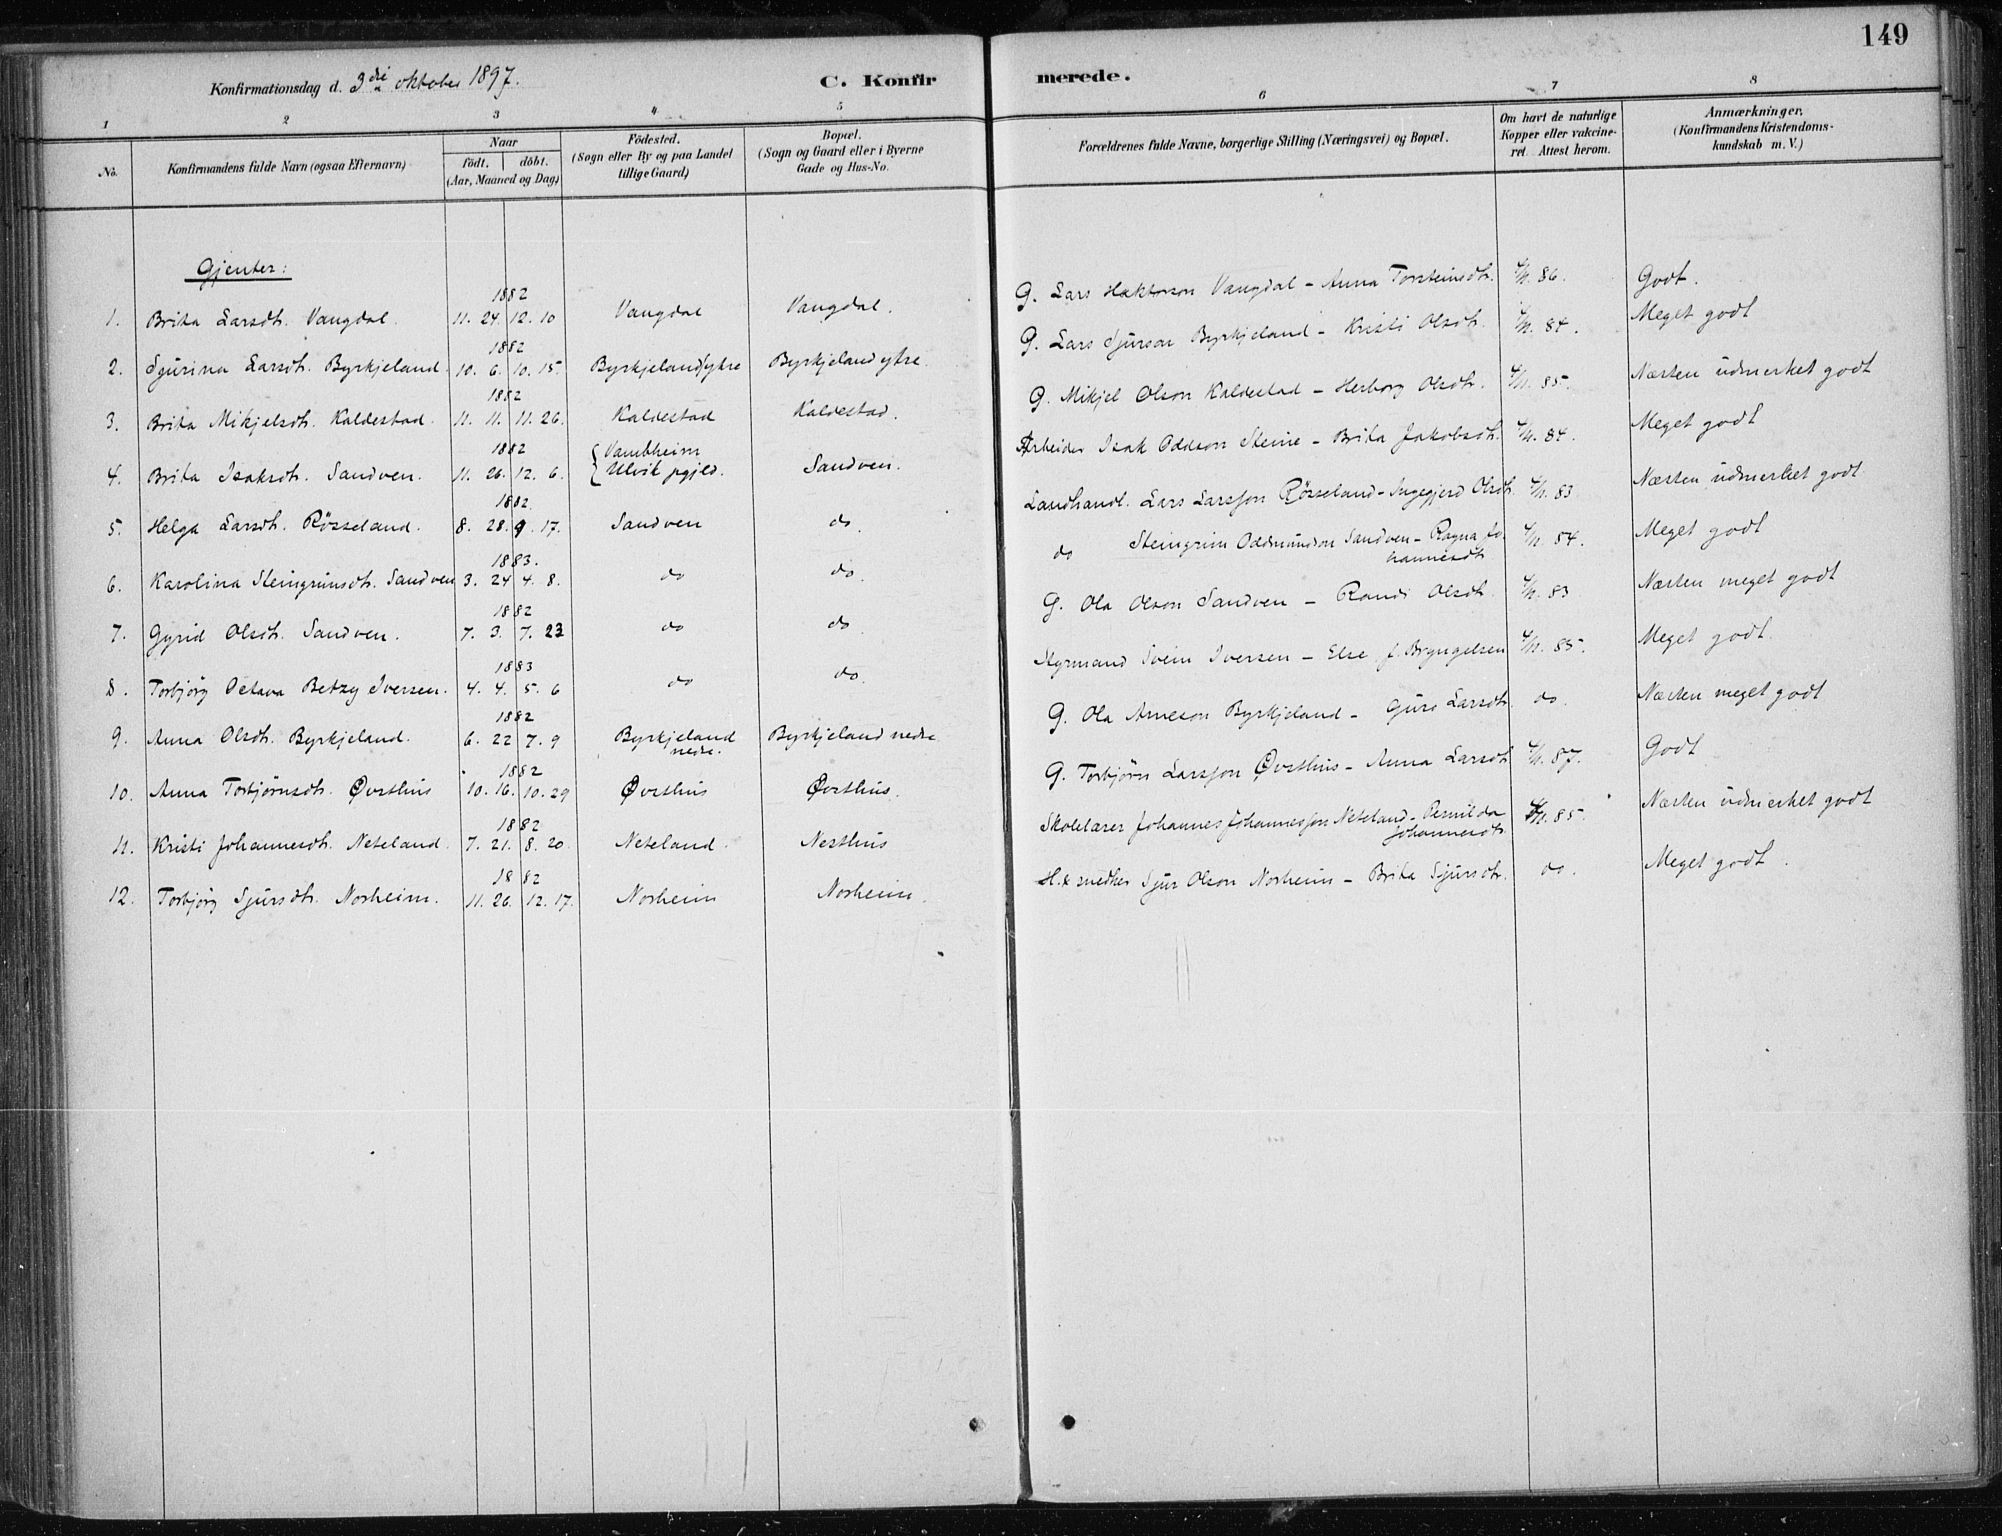 149
Konfirmationsdag d. 3die oktober 1897.
C. Konfirmerede.
1 2 3 4 5 6 7 8
No.
Konfirmandens fulde Navn (ogsaa Efternavn)
Naar
födt. döbt.
(Aar, Maaned og Dag)
Födested.
(Sogn eller By og paa Landet
tillige Gaard)
Bopæl.
(Sogn og Gaard eller i Byerne
Gade og Hus-No.
Forældrenes fulde Navne, borgerlige Stilling (Næringsvei) og Bopæl.
Om havt de naturlige
Kopper eller vakcine-
ret. Attest herom.
Anmærkninger.
(Konfirmandens Kristendoms-
kundskab m. V.)
Gjenter:
1882
1. Brita Larsdtr. Vangdal. 11. 24. 12. 10 Vangdal Vangdal. G. Lars Haktorson Vangdal - Anna Torsteinsdtr. 86. Godt.
1882
2. Sjurina Larsdtr. Byrkjeland. 10. 6. 10. 15. Byrkjeland ytre Byrkjeland ytre. G. Lars Sjurson Byrkjeland - Kristi Olsdtr. 84. Meget godt
1882
3. Brita Mikjelsdtr. Kaldestad. 11. 11. 11. 26. Kaldestad Kaldestad. G. Mikjel Olson Kaldestad - Herborg Olsdtr. 85. Næsten udmerket godt
1882
4. Brita Isaksdtr. Sandven. 11. 26. 12. 6. Vambheim
Ulvik pgjld. Sandven. Arbeider Isak Oddson Steine - Brita Jakobsdtr. 84. Meget godt
1882.
5. Helga Larsdtr. Røsseland. 8. 28. 9. 17. Sandven do Landhandl. Lars Larsson Røsseland - Ingegjerd Olsdtr. 83 Næsten udmerket godt.
1883.
6. Karolina Steingrimsdtr. Sandven 3. 24 4. 8. do do. do Steingrim Oddmundson Sandven - Ragna Jo-
hannesdtr 84. Meget godt
1882
7. Gyrid Olsdtr. Sandven. 7. 3. 7. 23 do do. G. Ola Olson Sandven - Randi Olsdtr. 83 Næsten meget godt
1883
8. Torbjørg Octava Betzy Iversen. 4. 4. 5. 6 do do. Styrmand Svein Iversen - Else f. Bryngelsen 85. Meget godt.
1882
9. Anna Olsdtr. Byrkjeland. 6. 22 7. 9 Byrkjeland
nedre. Byrkjeland nedre G. Ola Arneson Byrkjeland - Guro Larsdtr. do. Næsten meget godt
1882
10. Anna Torbjørnsdtr. Øvsthus 10. 16. 10. 29 Øvsthus Øvsthus. G. Torbjørn Larsson Øvsthus - Anna Larsdtr 87. Godt
1882
11. Kristi Johannesdtr. Neteland. 7. 21. 8. 20. Neteland. Nesthus Skolelærer Johannes Johannesson Neteland - Pernilda
Johannesdtr. 85. Næsten udmerket godt
1882
12. Torbjørg Sjursdtr. Norheim. 11. 26. 12. 17. Norheim Norheim. H. & snedker Sjur Olson Norheim - Brita Sjursdtr. do. Meget godt.